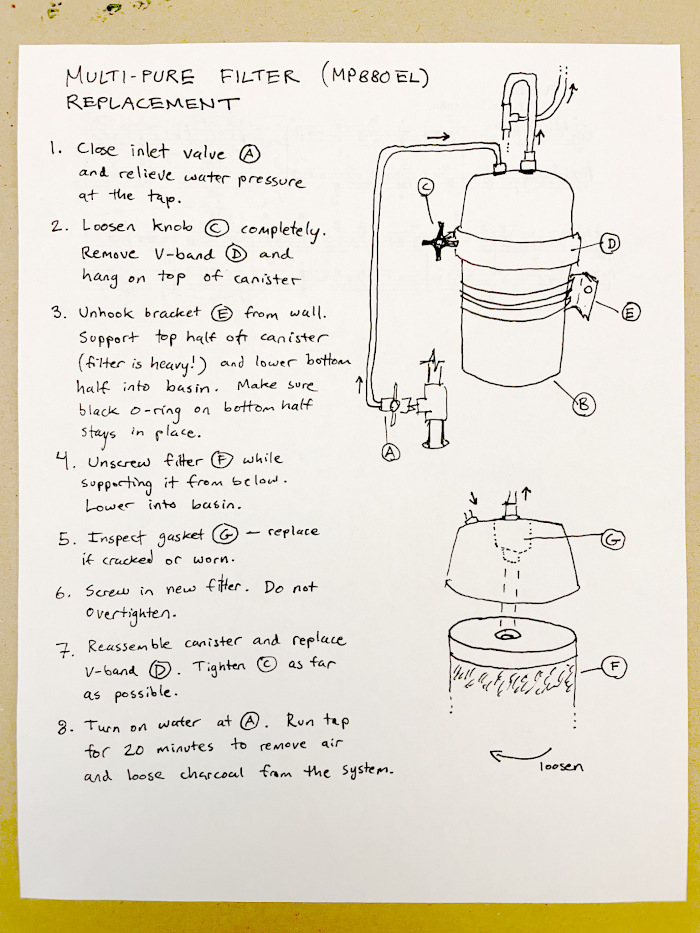 MULTI-PURE FILTER (MP880EL)
REPLACEMENT
1. Close inlet valve Ⓐ
and relieve water pressure
at the tap.
2. Loosen knob Ⓒ completely.
Remove V-band Ⓓ and
hang on top of canister
3. Unhook bracket Ⓔ from wall.
Support top half oft canister
(filter is heavy!) and lower bottom
half into basin. Make sure
black o-ring on bottom half
stays in place.
4. Unscrew filter Ⓕ while
supporting it from below.
Lower into basin.
5. Inspect gasket Ⓖ – replace
if cracked or worn.
6. Screw in new filter. Do not
overtighten.
7. Reassemble canister and replace
V-band Ⓓ. Tighten Ⓒ as far
as possible.
8. Turn on water at Ⓐ. Run tap
for 20 minutes to remove air
and loose charcoal from the system.
Ⓒ
Ⓓ
Ⓔ
Ⓑ
Ⓐ
Ⓖ
Ⓕ
loosen